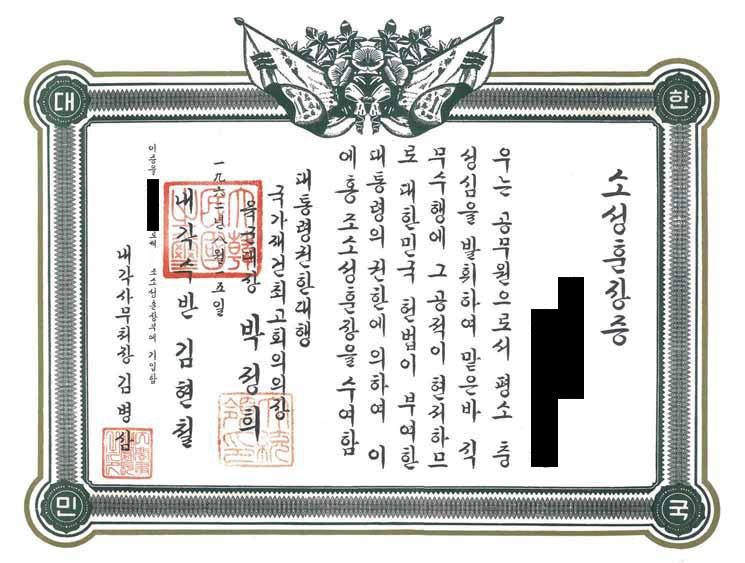 대 한
민 국
소성훈장증
우는 공무원으로서 평소 충
성심을 발휘하여 맡은바 직
무수행에 그 공적이 현저하므
로 대한민국 헌법이 부여한
대통령의 권한에 의하여 이
에 홍조소성훈장을 수여함
대통령권한대행
국가재건최고회의의장
육군대장 박정희
一九六二년八월一五일
내각수반 김현철
이증을 조소성훈장부에 기입함
내각사무처장 김병삼